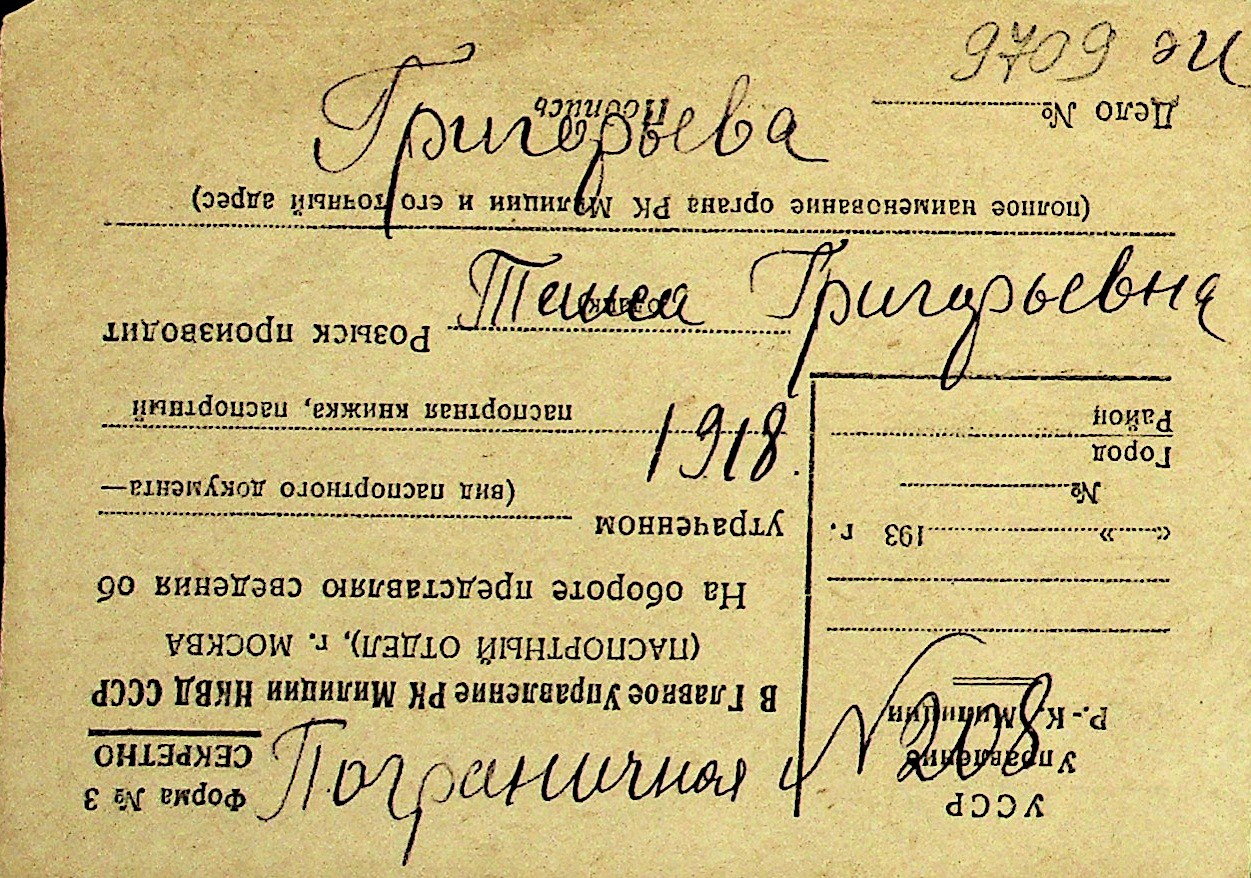 9709
Григорьева
Григорьевна
1918.
Пограничная № 208
УССР
Управление
Р.-К. Милиции
« » 193 г.
№
Город
Район
Форма № 3
СЕКРЕТНО
В Главное Управление РК Милиции НКВД СССР
(ПАСПОРТНЫЙ ОТДЕЛ), г. МОСКВА
На обороте представляю сведения об
утраченном
(вид паспортного документа—
паспортная книжка, паспортный
Розыск производит
(полное наименование органа РК Милиции и его точный адрес)
Дело №
Подпись